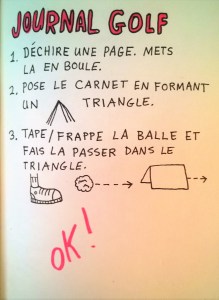 JOURNAL GOLF
1. DÉCHIRE UNE PAGE. METS
LA EN BOULE.
2. POSE LE CARNET EN FORMANT
UN TRIANGLE.
3. TAPE/FRAPPE LA BALLE ET
FAIS LA PASSER DANS LE
TRIANGLE.
OK!